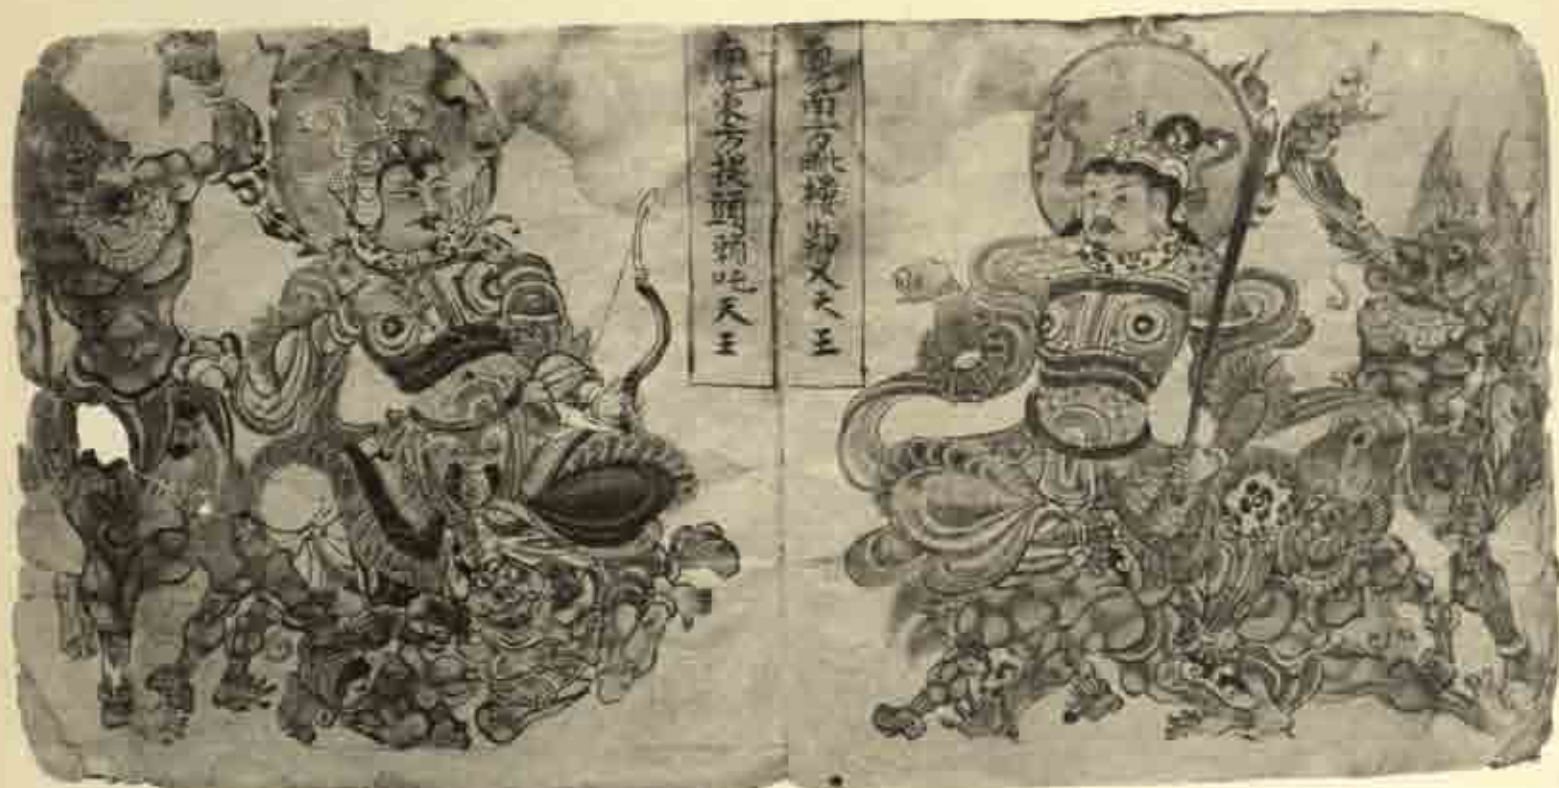 南方毗樓勒叉天王
東方提頭賴吒天王